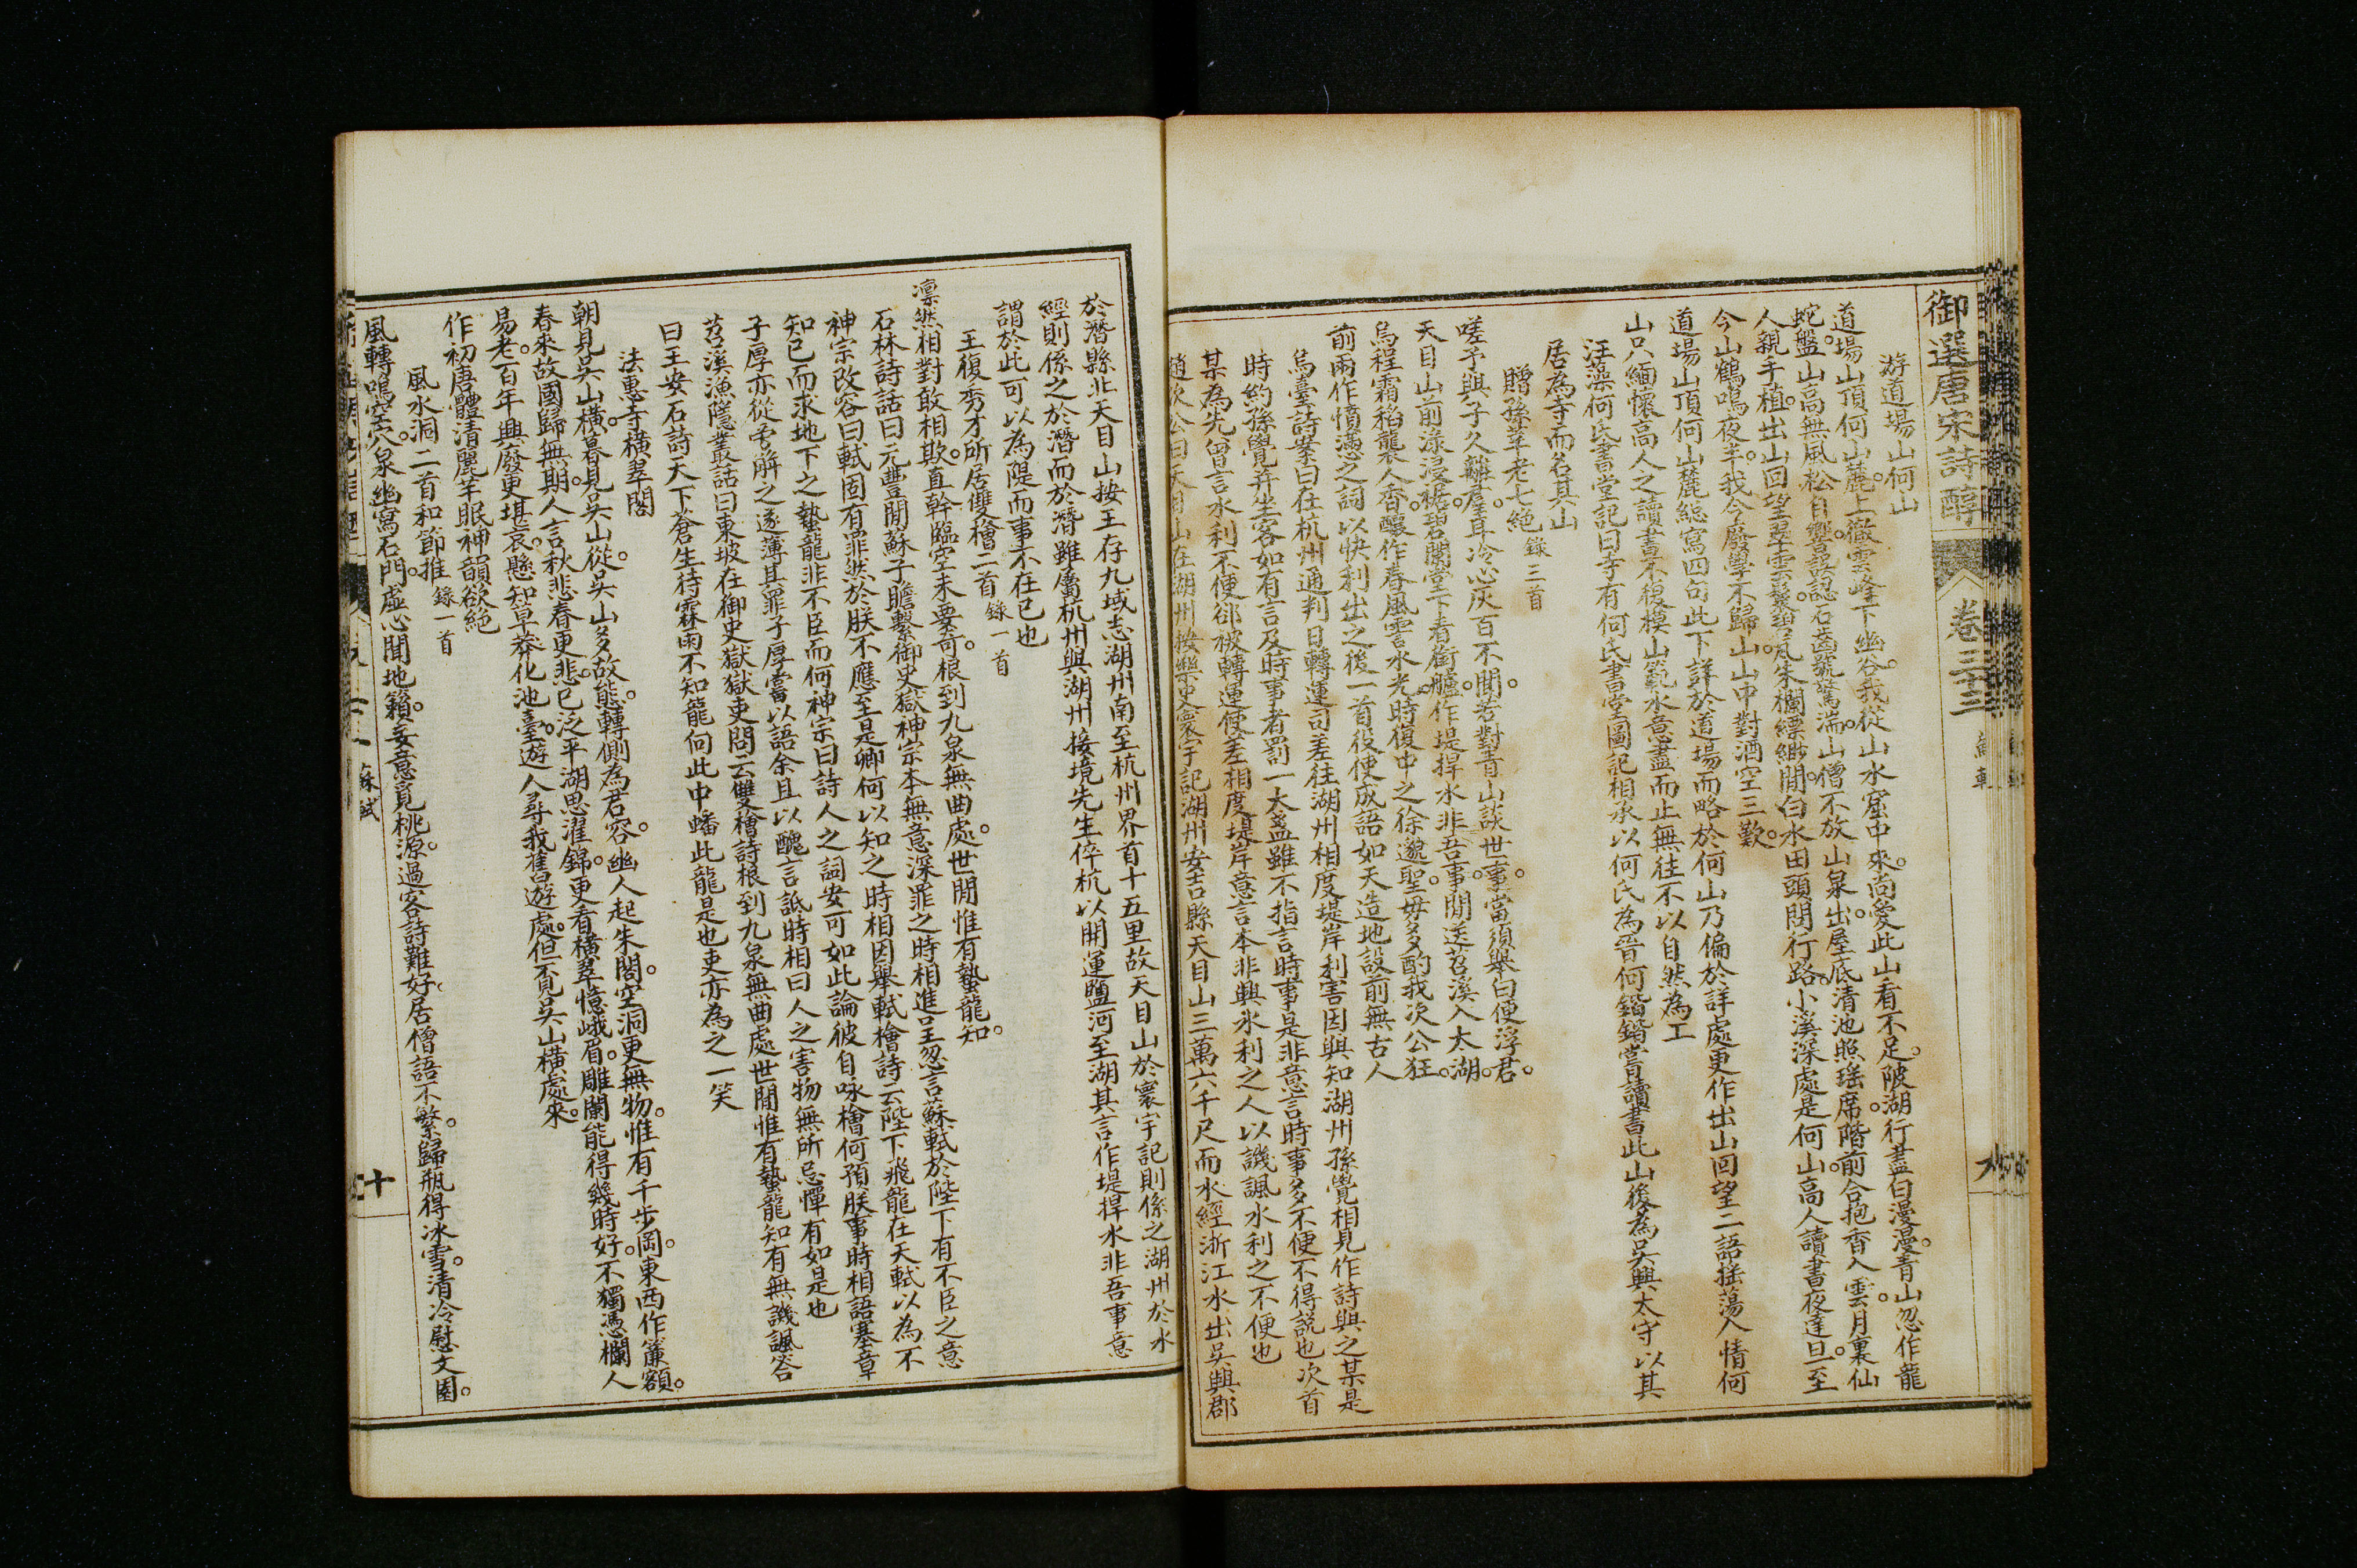 御選唐宋詩醇 卷三十三
游道場山何山
道場山頂何山麓上徹雲峰下幽谷我從山水窟中來尚愛此山看不足陂湖行盡白漫漫青山忽作龍
蛇盤山高無風松自響誤認石齒號驚湍山僧不放山泉出屋底清池照瑤席階前合抱香入雲月裏仙
人親手植出山回望翠雲鬟碧瓦朱欄縹緲間白水田頭問行路小溪深處是何山高人讀書夜達旦至
今山鶴鳴夜半我今廢學不歸山山中對酒空三歎
道場山頂何山麓總寫四句此下詳於道場而略於何山乃偏於詳處更作出山回望二語搖蕩人情何
山只緬懷高人之讀書不復模山範水意盡而止無往不以自然為工
汪藻何氏書堂記曰寺有何氏書堂圖記相承以何氏為晉何鍇鍇嘗讀書此山後為吳興太守以其
居為寺而名其山
贈孫莘老七絕錄三首
嗟予與子久離羣耳冷心灰百不聞若對青山談世事當須舉白便浮君
天目山前淥浸裾碧瀾堂下看銜艫作堤捍水非吾事閒送苕溪入太湖
烏程霜稻襲人香釀作春風霅水光時復中之徐邈聖毋多酌我次公狂
前兩作憤懣之詞以快利出之後一首役使成語如天造地設前無古人
烏臺詩案曰在杭州通判日轉運司差往湖州相度堤岸利害因與知湖州孫覺相見作詩與之某是
時約孫覺并坐客如有言及時事者罰一大盞雖不指言時事是非意言時事多不便不得說也次首
某為先曾言水利不便卻被轉運使差相度堤岸意言本非興水利之人以譏諷水利之不便也
趙次公曰天目山在湖州按樂史寰宇記湖州安吉縣天目山三萬六千尺而水經浙江水出吳興郡
於潛縣北天目山按王存九域志湖州南至杭州界首十五里故天目山於寰宇記則係之湖州於水
經則係之於潛而於潛雖屬杭州與湖州接境先生倅杭以開運鹽河至湖其言作堤捍水非吾事意
謂於此可以為隄而事不在已也
王復秀才所居雙檜二首錄一首
凜然相對敢相欺直幹臨空未要奇根到九泉無曲處世閒惟有蟄龍知
石林詩話曰元豐閒蘇子瞻繫御史獄神宗本無意深罪之時相進呈忽言蘇軾於陛下有不臣之意
神宗改容曰軾固有罪然於朕不應至是卿何以知之時相因舉軾檜詩云陛下飛龍在天軾以為不
知已而求地下之蟄龍非不臣而何神宗曰詩人之詞安可如此論彼自咏檜何預朕事時相語塞章
子厚亦從旁解之遂薄其罪子厚嘗以語余且以醜言詆時相曰人之害物無所忌憚有如是也
苕溪漁隱叢話曰東坡在御史獄獄吏問云雙檜詩根到九泉無曲處世閒惟有蟄龍知有無譏諷答
曰王安石詩天下蒼生待霖雨不知龍向此中蟠此龍是也吏亦為之一笑
法惠寺橫翠閣
朝見吳山橫暮見吳山從吳山多故態轉側為君容幽人起朱閣空洞更無物惟有千步岡東西作簾額
春來故國歸無期人言秋悲春更悲已泛平湖思濯錦更看橫翠憶峨眉雕闌能得幾時好不獨憑欄人
易老百年興廢更堪哀懸知草莽化池臺遊人尋我舊遊處但覓吳山橫處來
作初唐體清麗芊眠神韻欲絕
風水洞二首和節推錄一首
風轉鳴空穴泉幽瀉石門虛心聞地籟妄意覓桃源過客詩難好居僧語不繁歸瓶得冰雪清冷慰文園
蘇軾
十